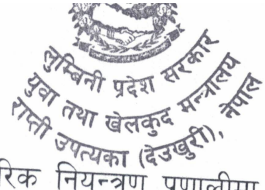 लुम्बिनी प्रदेश सरकार
युवा तथा खेलकुद मन्त्रालय
राप्ती उपत्यका (देउखुरी), नेपाल
रिक नियन्त्रण प्रणालीमा